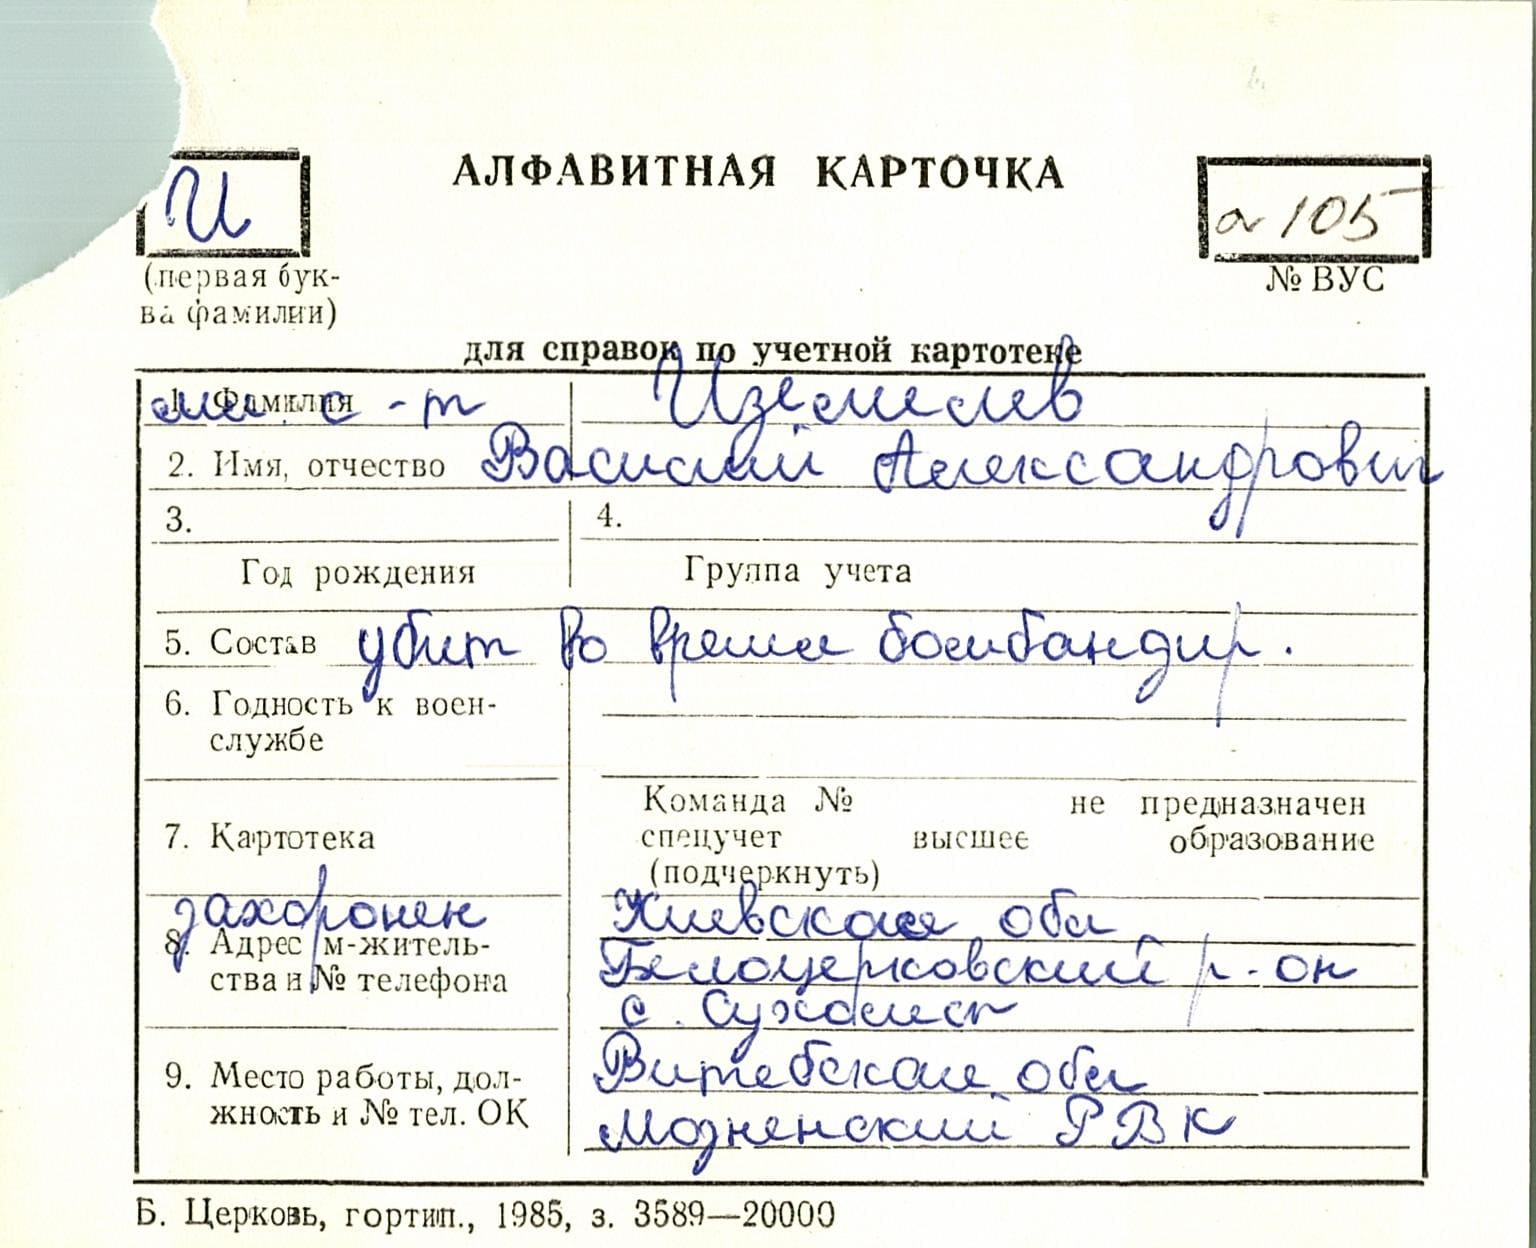 АЛФАВИТНАЯ КАРТОЧКА
И
(первая бук-
ва фамилии)
а 105
№ ВУС
для справок по учетной картотеке
1. Фамилия мл. с-т Иземелев
2. Имя, отчество Василий Александрович
3.
4.
Год рождения
Группа учета
5. Состав убит во время бомбандир.
6. Годность к воен-
службе
7. Картотека
Команда № не предназначен
спецучет высшее образование
(подчеркнуть)
захоронен Киевская обл
8. Адрес м-житель-
ства и № телефона
Белоцерковский р-он
с. Сухолист
9. Место работы, дол-
жность и № тел. ОК
Витебская обл
Мозненский РВК
Б. Церковь, гортип., 1985, з. 3589—20000